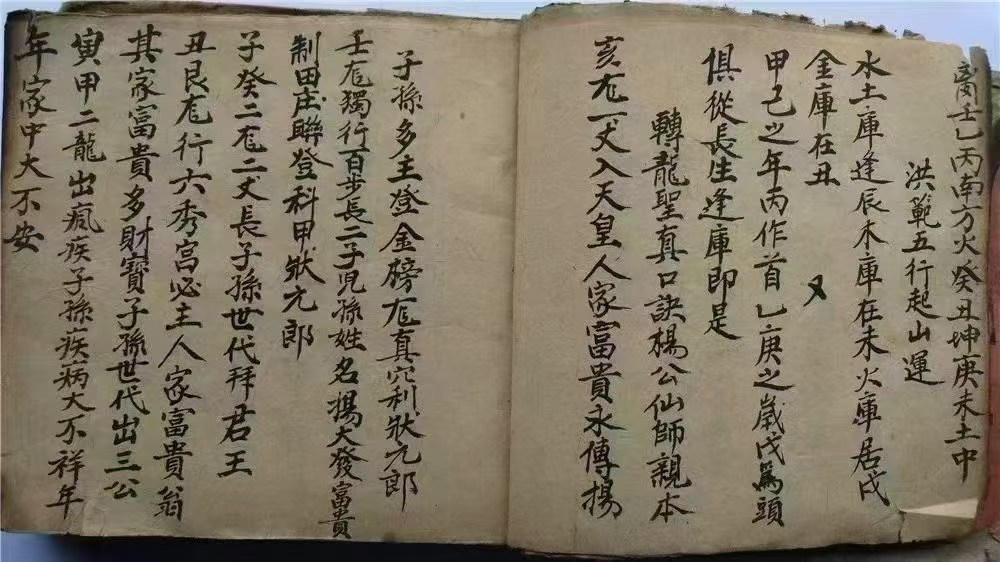 壬乙丙南方火癸丑坤庚未土中
洪範五行起山運
水土庫逢辰木庫在未火庫居戌
金庫在丑 又
甲己之年丙作首乙庚之歲戊為頭
俱從長生逢庫即是
轉龍聖真口訣楊公仙師親本
亥尨一丈入天皇人家富貴永傳楊
子孫多主登金榜尨真穴利狀元郎
壬尨獨行百步長二子児孫姓名揚大發富貴
制田庄聯登科甲狀元郎
子癸二尨二丈長子孫世代拜君王
丑艮尨行六秀宮必主人家富貴翁
其家富貴多財寶子孫世代出三公
寅甲二龍出瘋疾子孫疾病大不祥年
年家中大不安